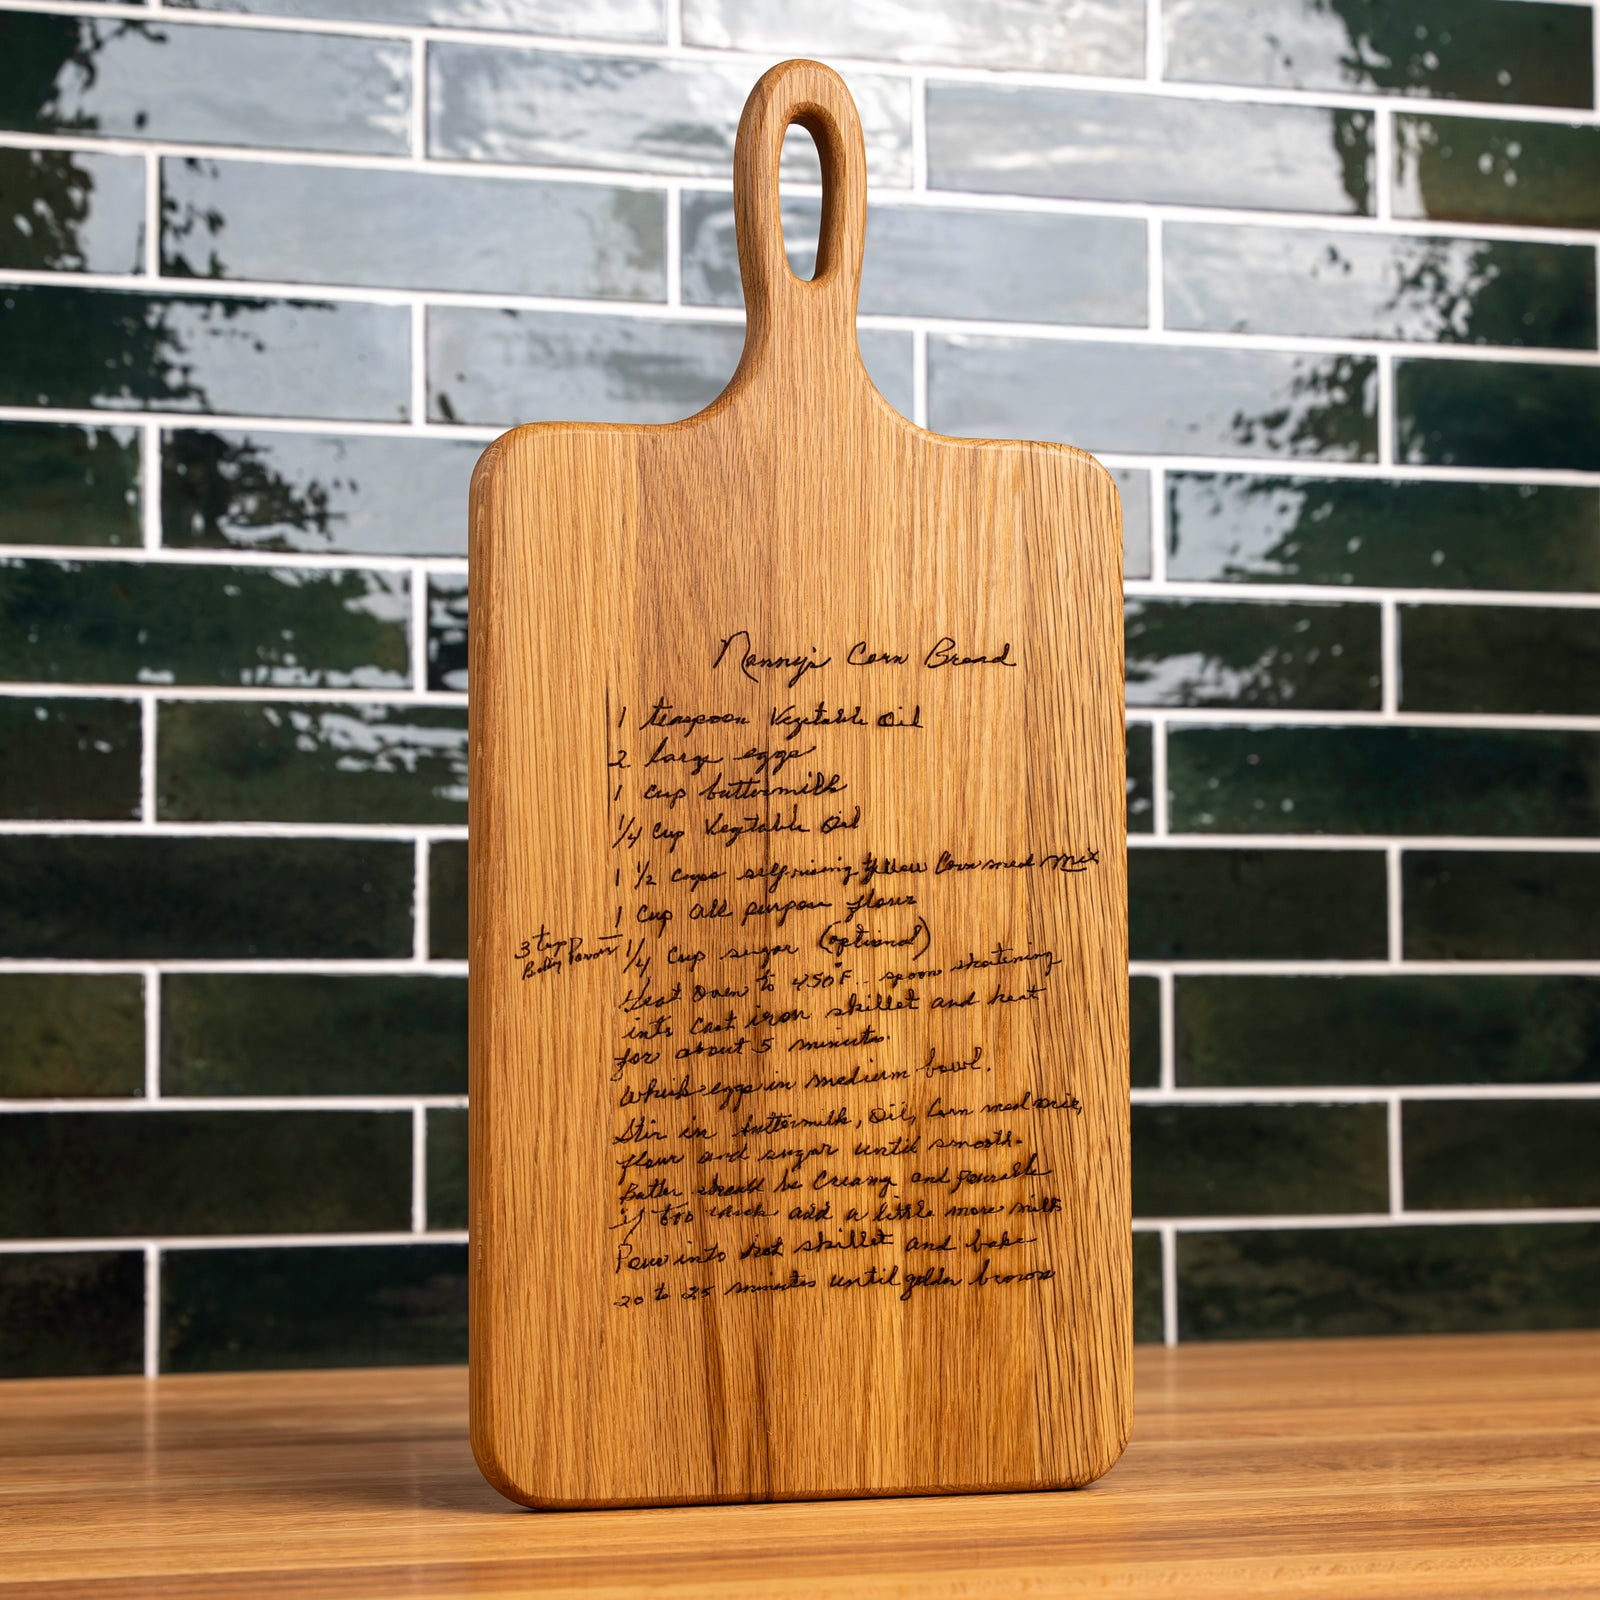 Nanny's Corn Bread
1 teaspoon Vegetable Oil
2 large eggs
1 cup buttermilk
1/4 cup Vegetable Oil
1 1/2 cups self-rising yellow Corn meal mix
1 cup all purpose flour
3 tsp
Baking Powder
1/4 cup sugar (optional)
Heat Oven to 450°F.. spoon shortening
into Cast iron skillet and heat
for about 5 minutes.
Whisk eggs in medium bowl.
Stir in buttermilk, Oil, Corn meal mix,
flour and sugar until smooth.
Batter should be Creamy and pourable
if too thick add a little more milk
Pour into hot skillet and bake
20 to 25 minutes until golden brown